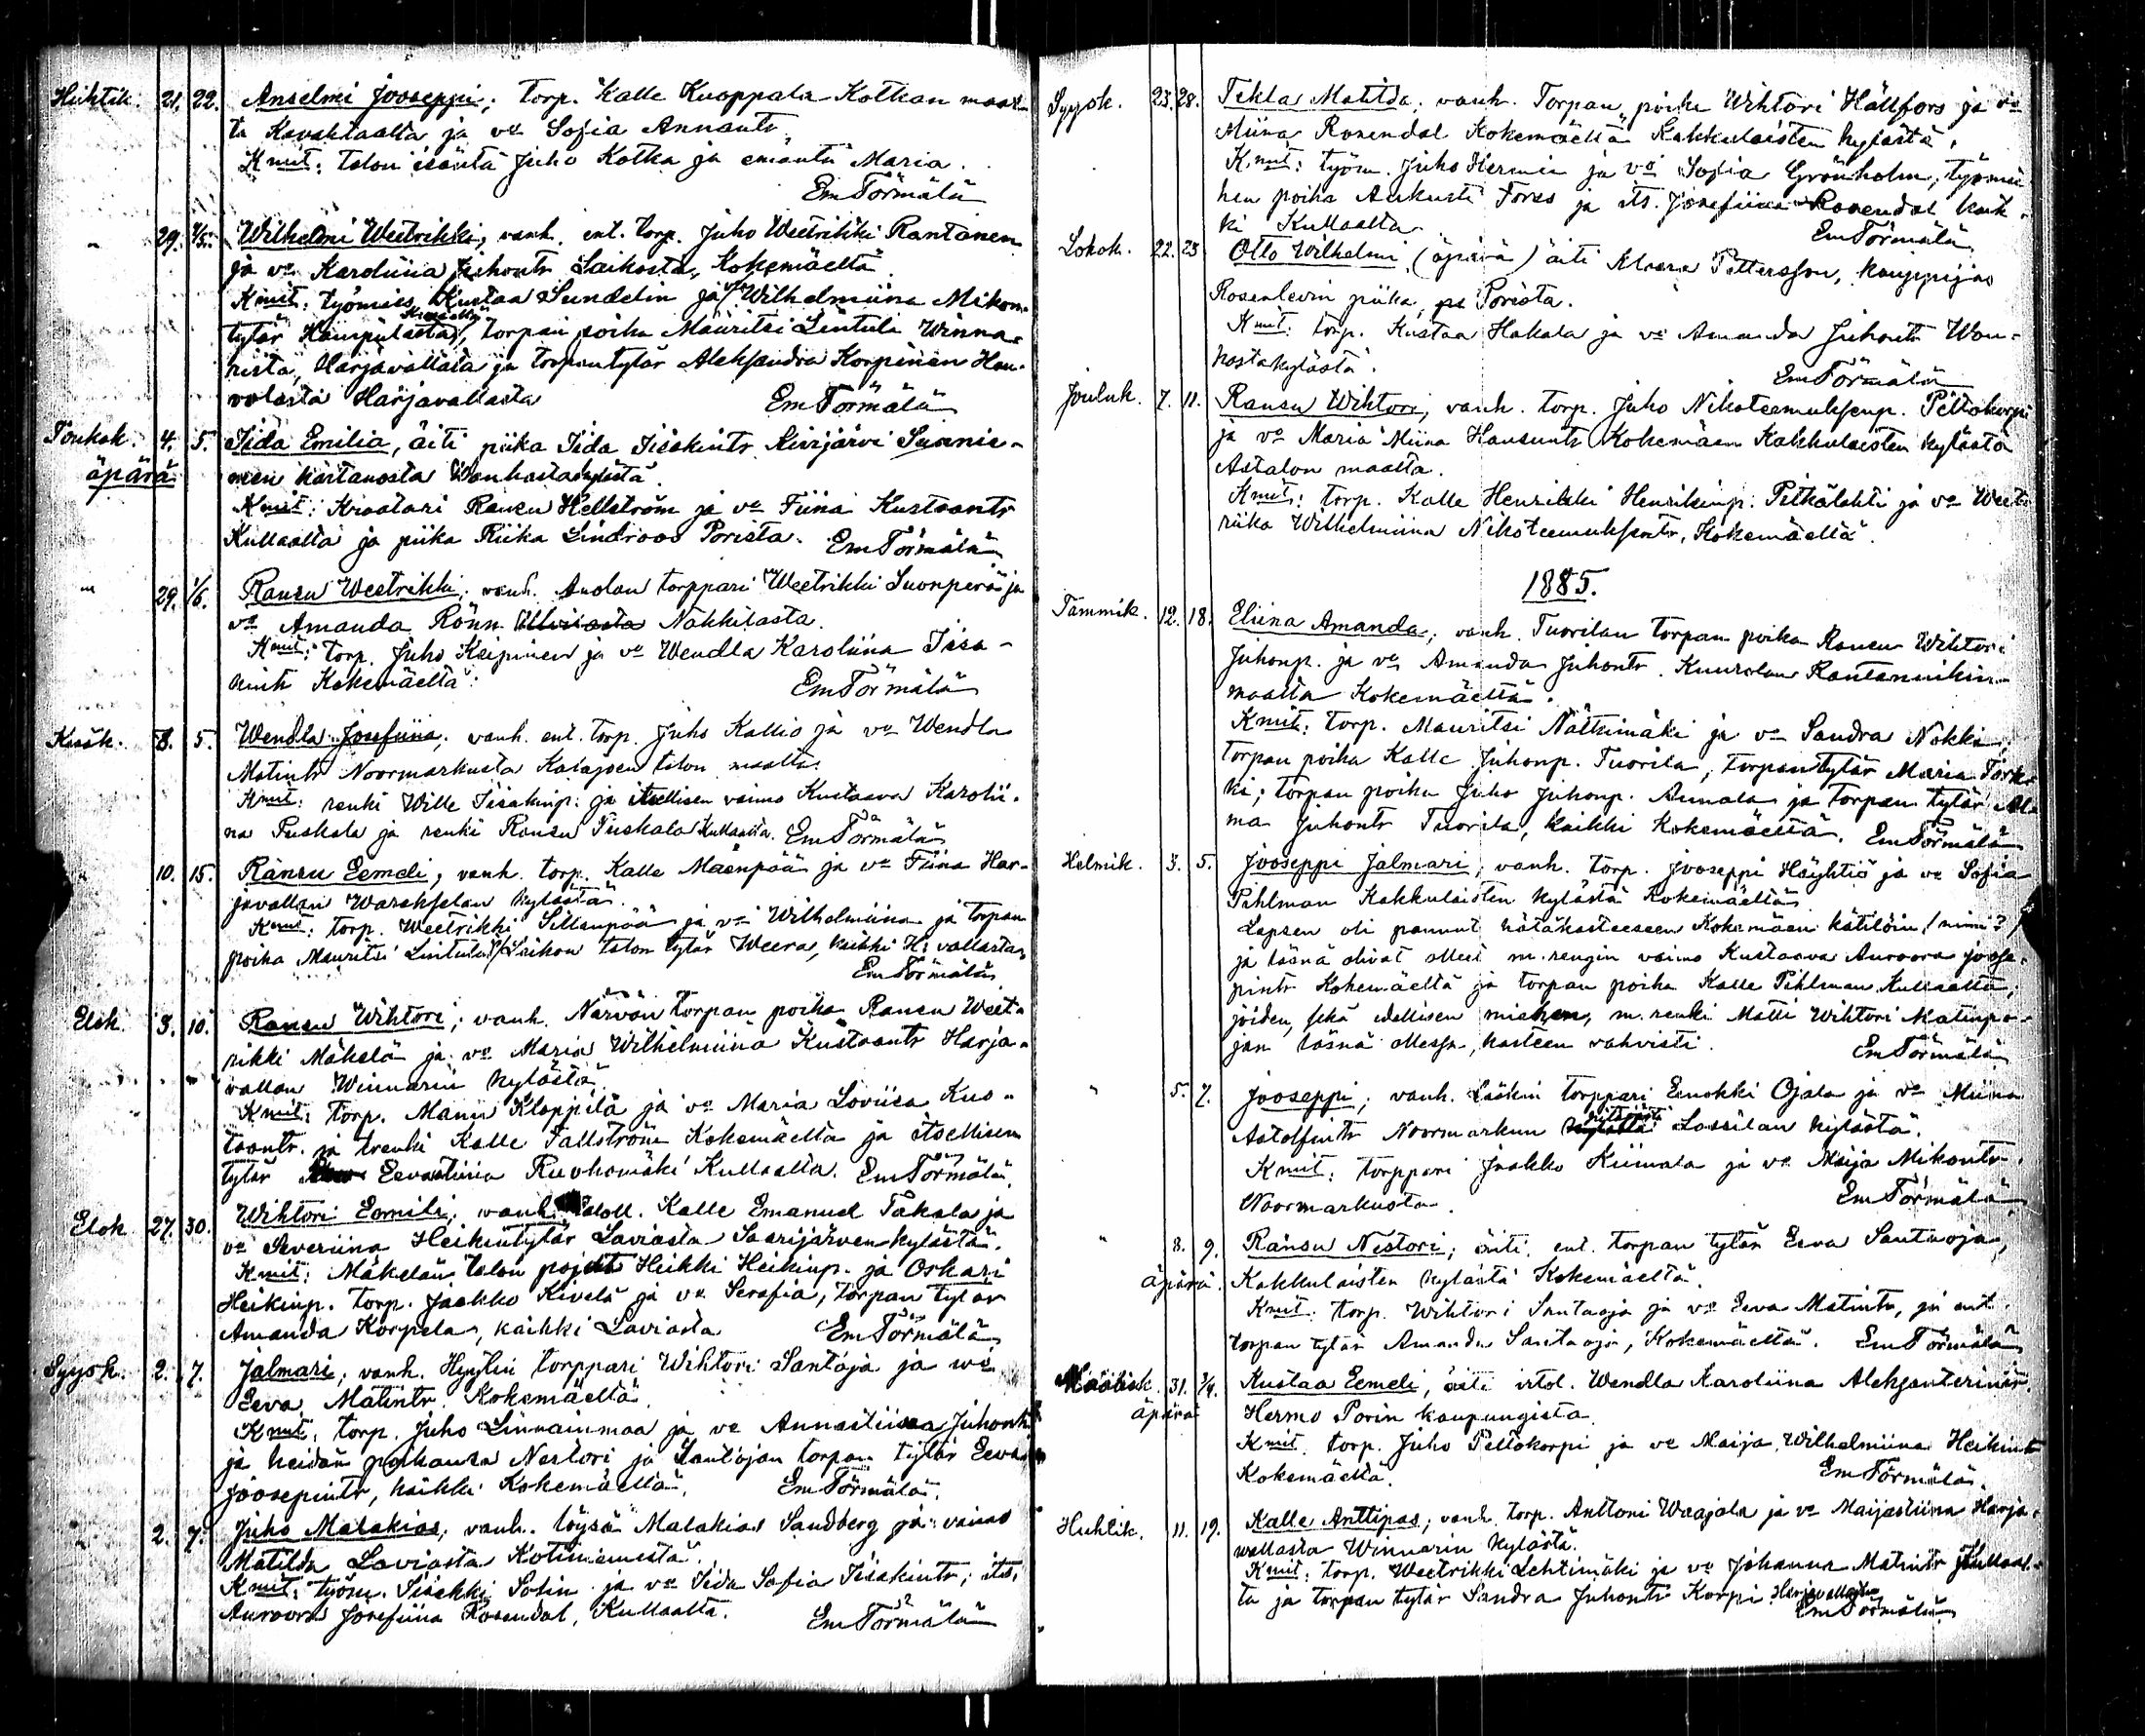 Huhtik. 21. 22. Anselmi Jooseppi; torp. Kalle Kuoppala Kotkan maal-
ta Kavahtaalta ja vo Sofia Annantr.
Kmit: talon isäntä Juho Kotka ja emäntä Maria.
Em Törmälä
" 29. 4/5. Wilhelmi Weetrikki, vanh. ent. torp. Juho Weetrikki Rantanen
ja vo Karoliina Juhontr Laikosta, Kokemäeltä.
Kmit: työmies Kustaa Sundelin ja vo Wilhelmiina Mikon-
tytär Kaupilasta, torpan poika Mauritsi Lintula Winna-
ristä, Harjavallasta ja torpantytär Aleksandra Korpinen Hau-
volasta Harjavallasta
Em Törmälä
Toukok. 4. 5. Iida Emilia, äiti piika Iida Iisakintr Kivijärvi Sunnie-
äpärä
men kartanosta Wanhastakylästä.
Kmit: Kraatari Ransu Hellström ja vo Fiina Kustaantr
Kullaalta ja piika Riika Lindroos Porista.
Em Törmälä
" 29. 1/6. Ransu Weetrikki, vanh. Anolan torppari Weetrikki Suonperä ja
vo Amanda Rönn Nakkilasta.
Kmit: torp. Juho Keipinen ja vo Wendla Karoliina Iisa-
kintr Kokemäeltä.
Em Törmälä
Kesäk. 8. 5. Wendla Josefiina, vanh. ent. torp. Juho Kallio ja vo Wendla
Matintr Noormarkusta Kalajoen talon maalta.
Kmit: renki Wille Iisakinp. ja itsellisen vaimo Kustaava Karolii-
na Puskala ja renki Ransu Puskala Kullaalta.
Em Törmälä
10. 15. Ransu Eemeli, vanh. torp. Kalle Mäenpää ja vo Fiina Har-
javallan Warekselan kylästä.
Kmit: torp. Weetrikki Sillanpää ja vo Wilhelmiina ja torpan
poika Mauritsi Lintula, Laikon talon tytär Weera, kaikki H:vallasta
Em Törmälä
Elok. 3. 10. Ransu Wihtori; vanh. Närvän torpan poika Ransu Weet-
rikki Mäkelä ja vo Maria Wilhelmiina Kustaantr Harja-
vallan Winnarin kylästä.
Kmit: torp. Manu Kloppila ja vo Maria Loviisa Kus-
taantr. ja trenki Kalle Fallström Kokemäeltä ja itsellisen
tytär Eevastiina Ruohomäki Kullaalta.
Em Törmälä
Elok. 27. 30. Wihtori Eemili, vanh. taloll. Kalle Emanuel Takala ja
vo Severiina Heikintytär Laviasta Saarijärven kylästä.
Kmit: Mäkelän talon pojat Heikki Heikinp. ja Oskari
Heikinp. torp. Jaakko Kivelä ja vo Serafia, torpan tytär
Amanda Korpela, kaikki Laviasta
Em Törmälä
Syysk. 2. 7. Jalmari, vanh. Hyytin torppari Wihtori Santoja ja vo
Eeva Matintr. Kokemäeltä.
Kmit: torp. Juho Linnainmaa ja vo Annastiina Juhontr
ja heidän poikansa Nestori ja Santojan torpan tytär Eeva
Joosepintr, kaikki Kokemäeltä.
Em Törmälä
" 2. 7. Juho Malakias, vanh. löysä Malakias Sandberg ja vaimo
Matilda Laviasta Kotiniemestä.
Kmit: työm. Iisakki Solin ja vo Iida Sofia Iisakintr; its.
Auroora Josefiina Rosendal, Kullaalta.
Em Törmälä
Syysk. 23. 28. Tekla Matilda. vanh. Torpan poika Wihtori Hällfors ja vo
Miina Rosendal Kokemäeltä Kakkulaisten kylästä.
Kmit: työm. Juho Hermin ja vo Sofia Grönholm, työmie-
hen poika Aukusti Fors ja its. Josefiina Rosendal kaik-
ki Kullaalta.
Em Törmälä
Lokok. 22. 23 Otto Wilhelmi (äpärä) äiti Maara Pettersson, kauppijas
Rosenlevin piika, Porista.
Kmit: torp. Kustaa Hakala ja vo Amanda Juhontr Wan-
hastakylästä.
Em Törmälä
Jouluk. 7. 11. Ransu Wihtori, vanh. torp. Juho Nikoteemuksenp. Peltokorpi
ja vo Maria Miina Hansuntr Kokemäen Kakkulaisten kylästä
Astalon maalta.
Kmit: torp. Kalle Henrikki Henrikinp. Pitkälahti ja vo Weet-
riika Wilhelmiina Nikoteemuksentr, Kokemäeltä.
1885.
Tammik. 12. 18. Eliina Amanda; vanh. Tuorilan torpan poika Ransu Wihtori
Juhonp. ja vo Amanda Juhontr. Kuurolan Rantannikin
maalta Kokemäeltä.
Kmit: torp. Mauritsi Nättimäki ja vo Sandra Nokki;
torpan poika Kalle Juhonp. Tuorila, torpantytär Maria Tork-
ki; torpan poika Juho Juhonp. Annala ja torpan tytär Al-
ma Juhontr Tuorila, kaikki Kokemäeltä.
Em Törmälä
Helmik. 3. 5. Jooseppi Jalmari, vanh. torp. Jooseppi Häyhtiö ja vo Sofia
Pihlman Kakkulaisten kylästä Kokemäeltä.
Lapsen oli pannut hätäkasteeseen Kokemäen kätilöin (nimi?)
ja läsnä olivat olleet m. rengin vaimo Kustaava Auroora Joose-
pintr Kokemäeltä ja torpan poika Kalle Pihlman Kullaalta,
joiden, sekä edellisen miehen, m. renki Matti Wihtori Matinpo-
jan läsnä ollessa, kasteen vahvisti.
Em Törmälä
" 5. 7. Jooseppi; vanh. Lääkin torppari Eenokki Ojala ja vo Miina
Astolfintr Noormarkun Lassilan kylästä.
Kmit: torppari Jaakko Kiimala ja vo Maija Mikontr
Noormarkusta.
Em Törmälä
" 8. 9. Ransu Nestori; äiti ent. torpan tytär Eeva Santaoja,
äpärä. Kakkulaisten kylästä Kokemäeltä.
Kmit: torp. Wihtori Santaoja ja vo Eeva Matintr, ja ent.
torpan tytär Amanda Santaoja, Kokemäeltä.
Em Törmälä
Maalisk. 31. 3/4. Kustaa Eemeli, äiti irtol. Wendla Karoliina Aleksanterintr.
äpärä Hermo Porin kaupungista.
Kmit. torp. Juho Peltokorpi ja vo Maija Wilhelmiina Heikintr
Kokemäeltä.
Em Törmälä.
Huhtik. 11. 19. Kalle Anttipas; vanh. torp. Anttoni Waajala ja vo Maijastiina Harja-
vallasta Winnarin kylästä.
Kmit: torp. Weetrikki Lehtimäki ja vo Johanna Matintr Kullaal-
ta ja torpan tytär Sandra Juhontr Korpi Harjavallasta
Em Törmälä